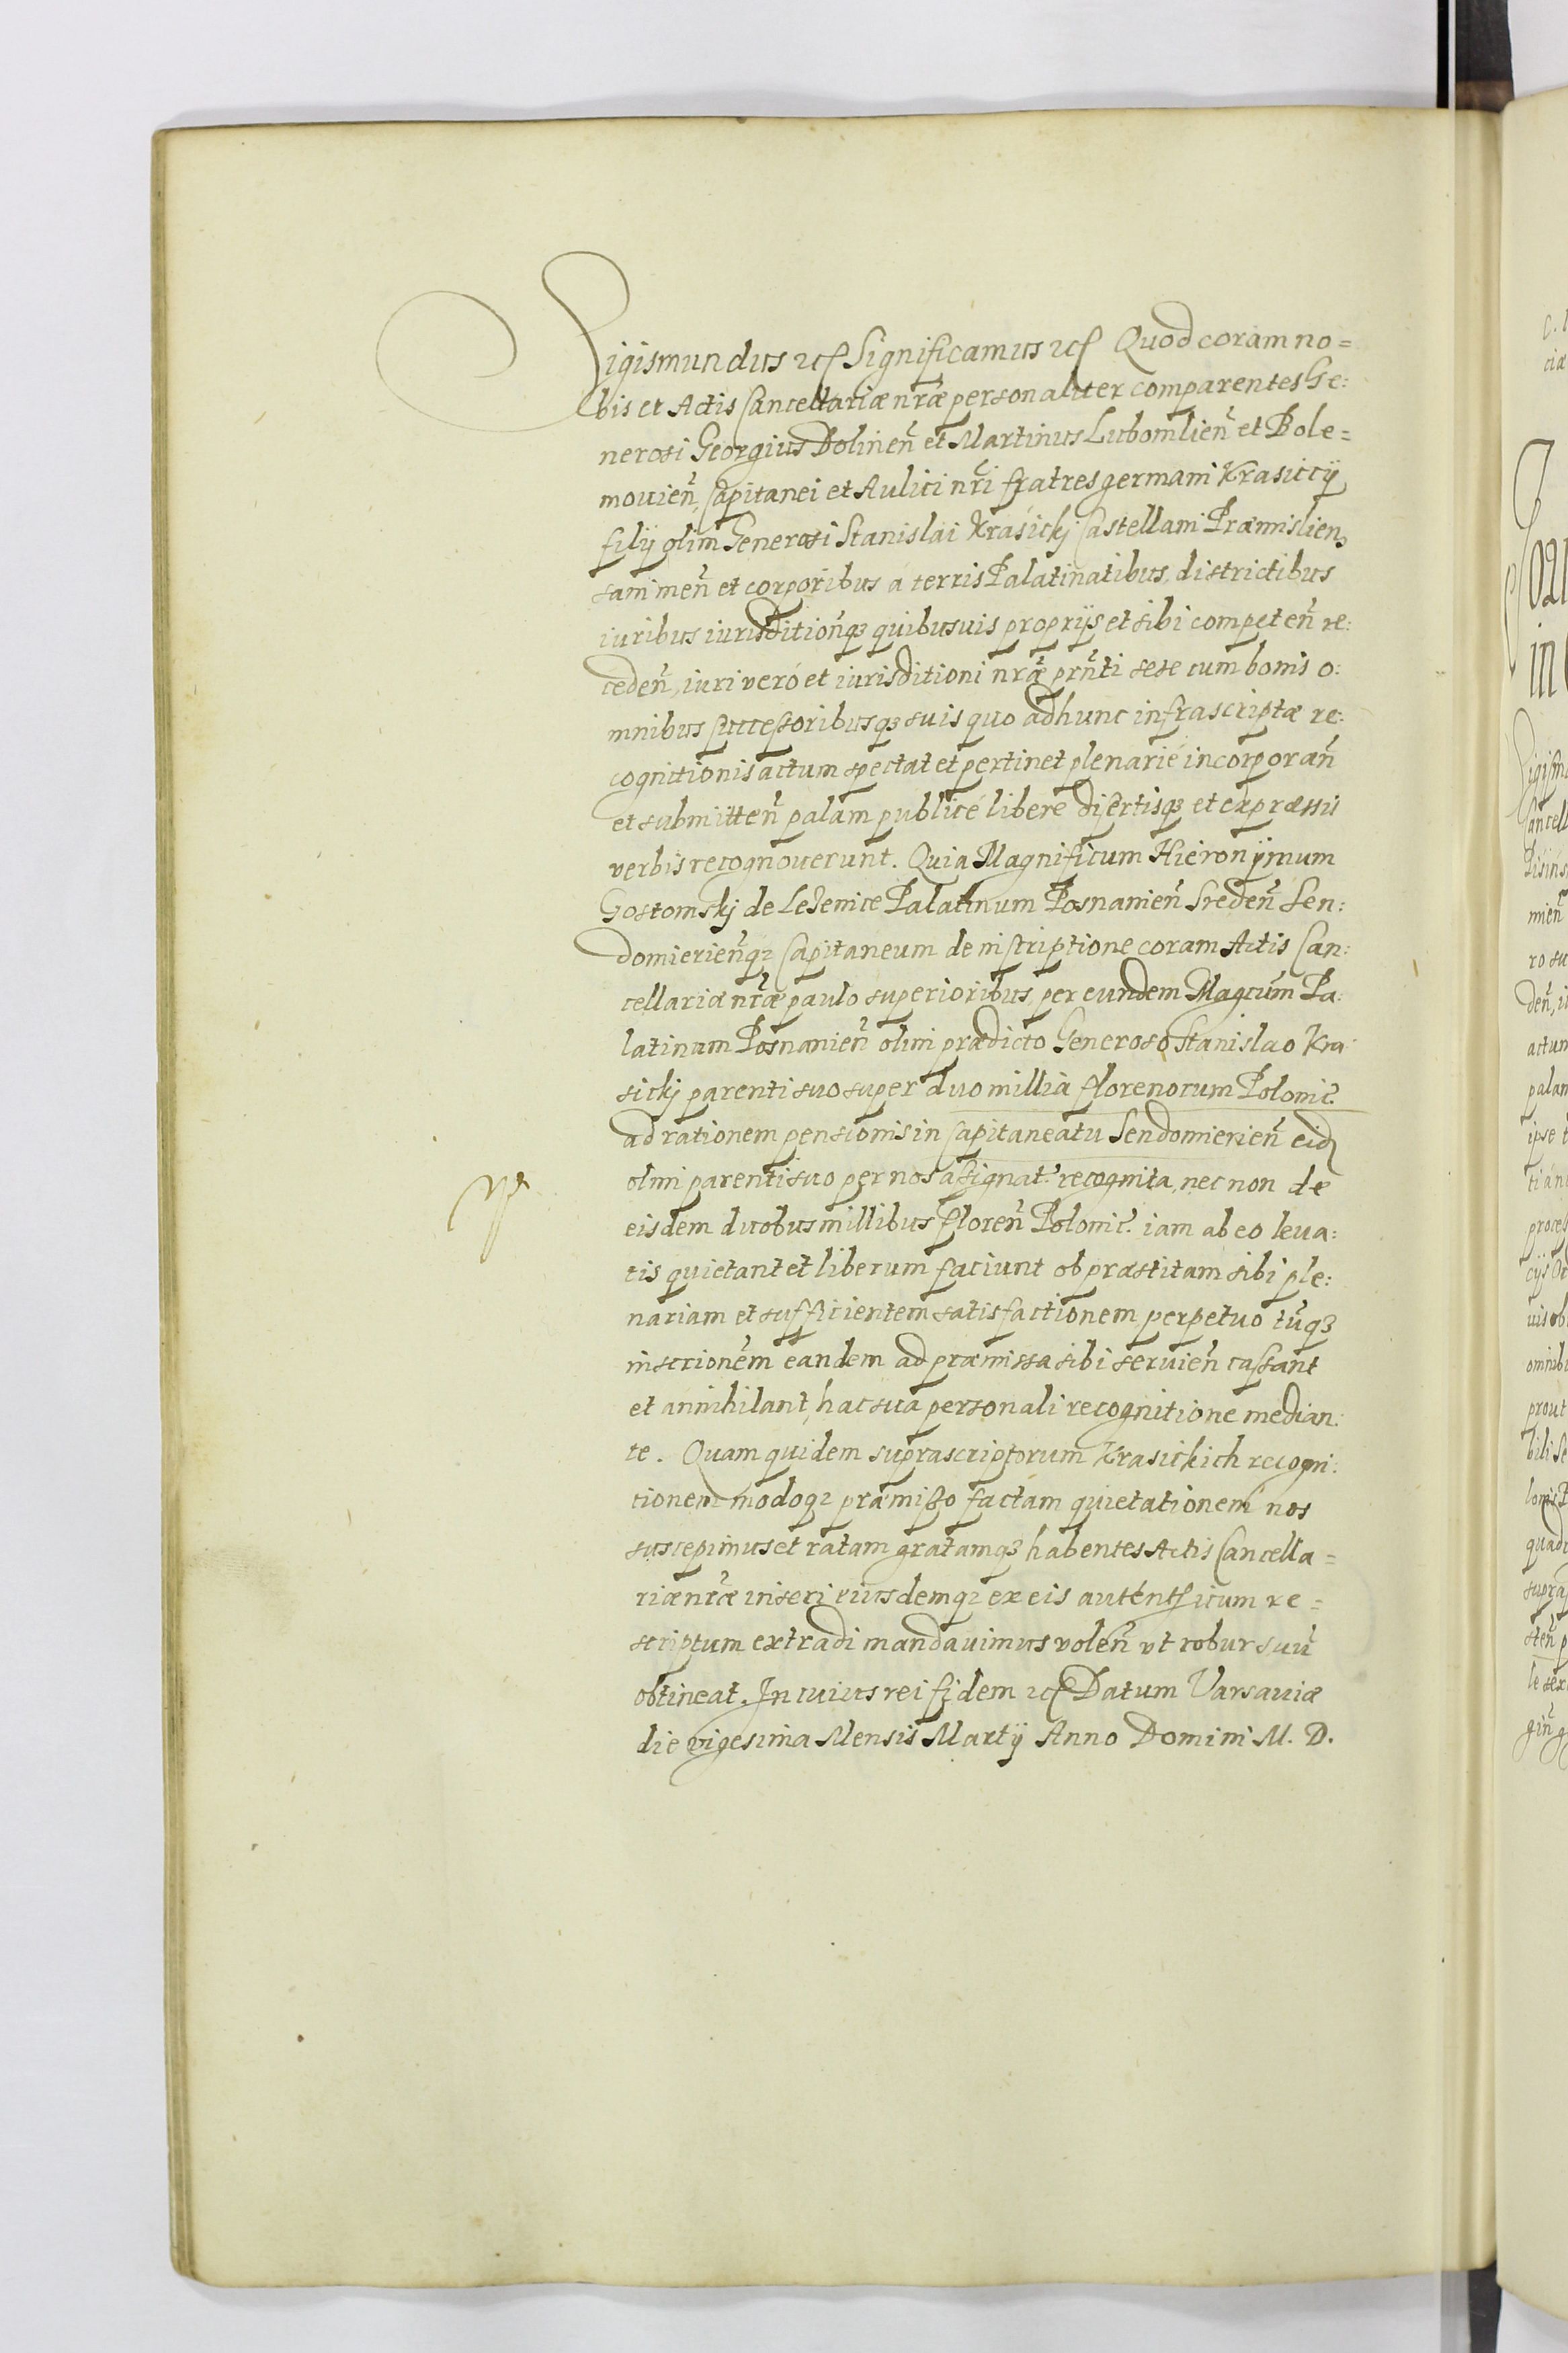 Sigismundus etc Significamus etc Quod coram no=
bis et Actis Cancellariæ nr̃æ personaliter comparentes Ge:
nerosi Georgius Dolinen̄ et Martinus Lubomlien̄ et Bole=
mouien̄, Capitanei et Aulici nr̃i fratres germani Krasiccÿ
filÿ olim Generosi Stanislai Krasickj Castellani Præmislien,
sani men̄ et corporibus á terris Palatinatibus, districtibus
iuribus iurisditionq3 quibusuis proprijs et sibi competen̄ re:
ceden̄, iuri veró et iurisditioni nr̃æ prn̄ti sese cum bonis o:
mnibus successoribusq3 suis quo ad hunc infrascriptæ re:
cognitionis actum spectat et pertinet plenarié incorporan̄
et submitten̄ palam publicé liberé disertisq3 et expræssis
verbis recognouerunt. Quia Magnificum Hieronÿmum
Gostomskj de Lezenice Palatinum Posnanien̄ Sreden̄ Sen:
domierien̄q3 Capitaneum de inscriptione coram Actis Can:
cellariæ nr̃æ paulo superioribus, per eundem Magcum̄ Pa:
latinum Posnanien̄ olim prædicto Generoso Stanislao Kra:
sickj parenti suo super duo millia florenorum Polonic̄.
ad rationem pensionis in Capitaneatu Sendomirien̄ eid̄
olim parenti suo per nos assignat̄. recognita, nec non de
eisdem duobus millibus floren̄ Polonic̄. iam ab eo leua:
tis quietant et liberum faciunt ob præstitam sibi ple:
nariam et sufficientem satisfactionem perpetuo tūq3
inscrionēm eandem ad præmissa sibi seruien̄ cassant
et annihilant, hac sua personali recognitione median:
te. Quam quidem suprascriptorum Krasickich recogni:
tionem modoq3 præmisso factam quietationem nos
suscepimus et ratam gratamq3 habentes Actis Cancella=
riæ nr̃æ inseri eiusdemq3 ex eis autenticum re=
scriptum extradi mandauimus volen̄ vt robur suū
obtineat. In cuius rei fidem etc Datum Varsauiæ
die vigesima Mensis Martÿ Anno Domini M. D.